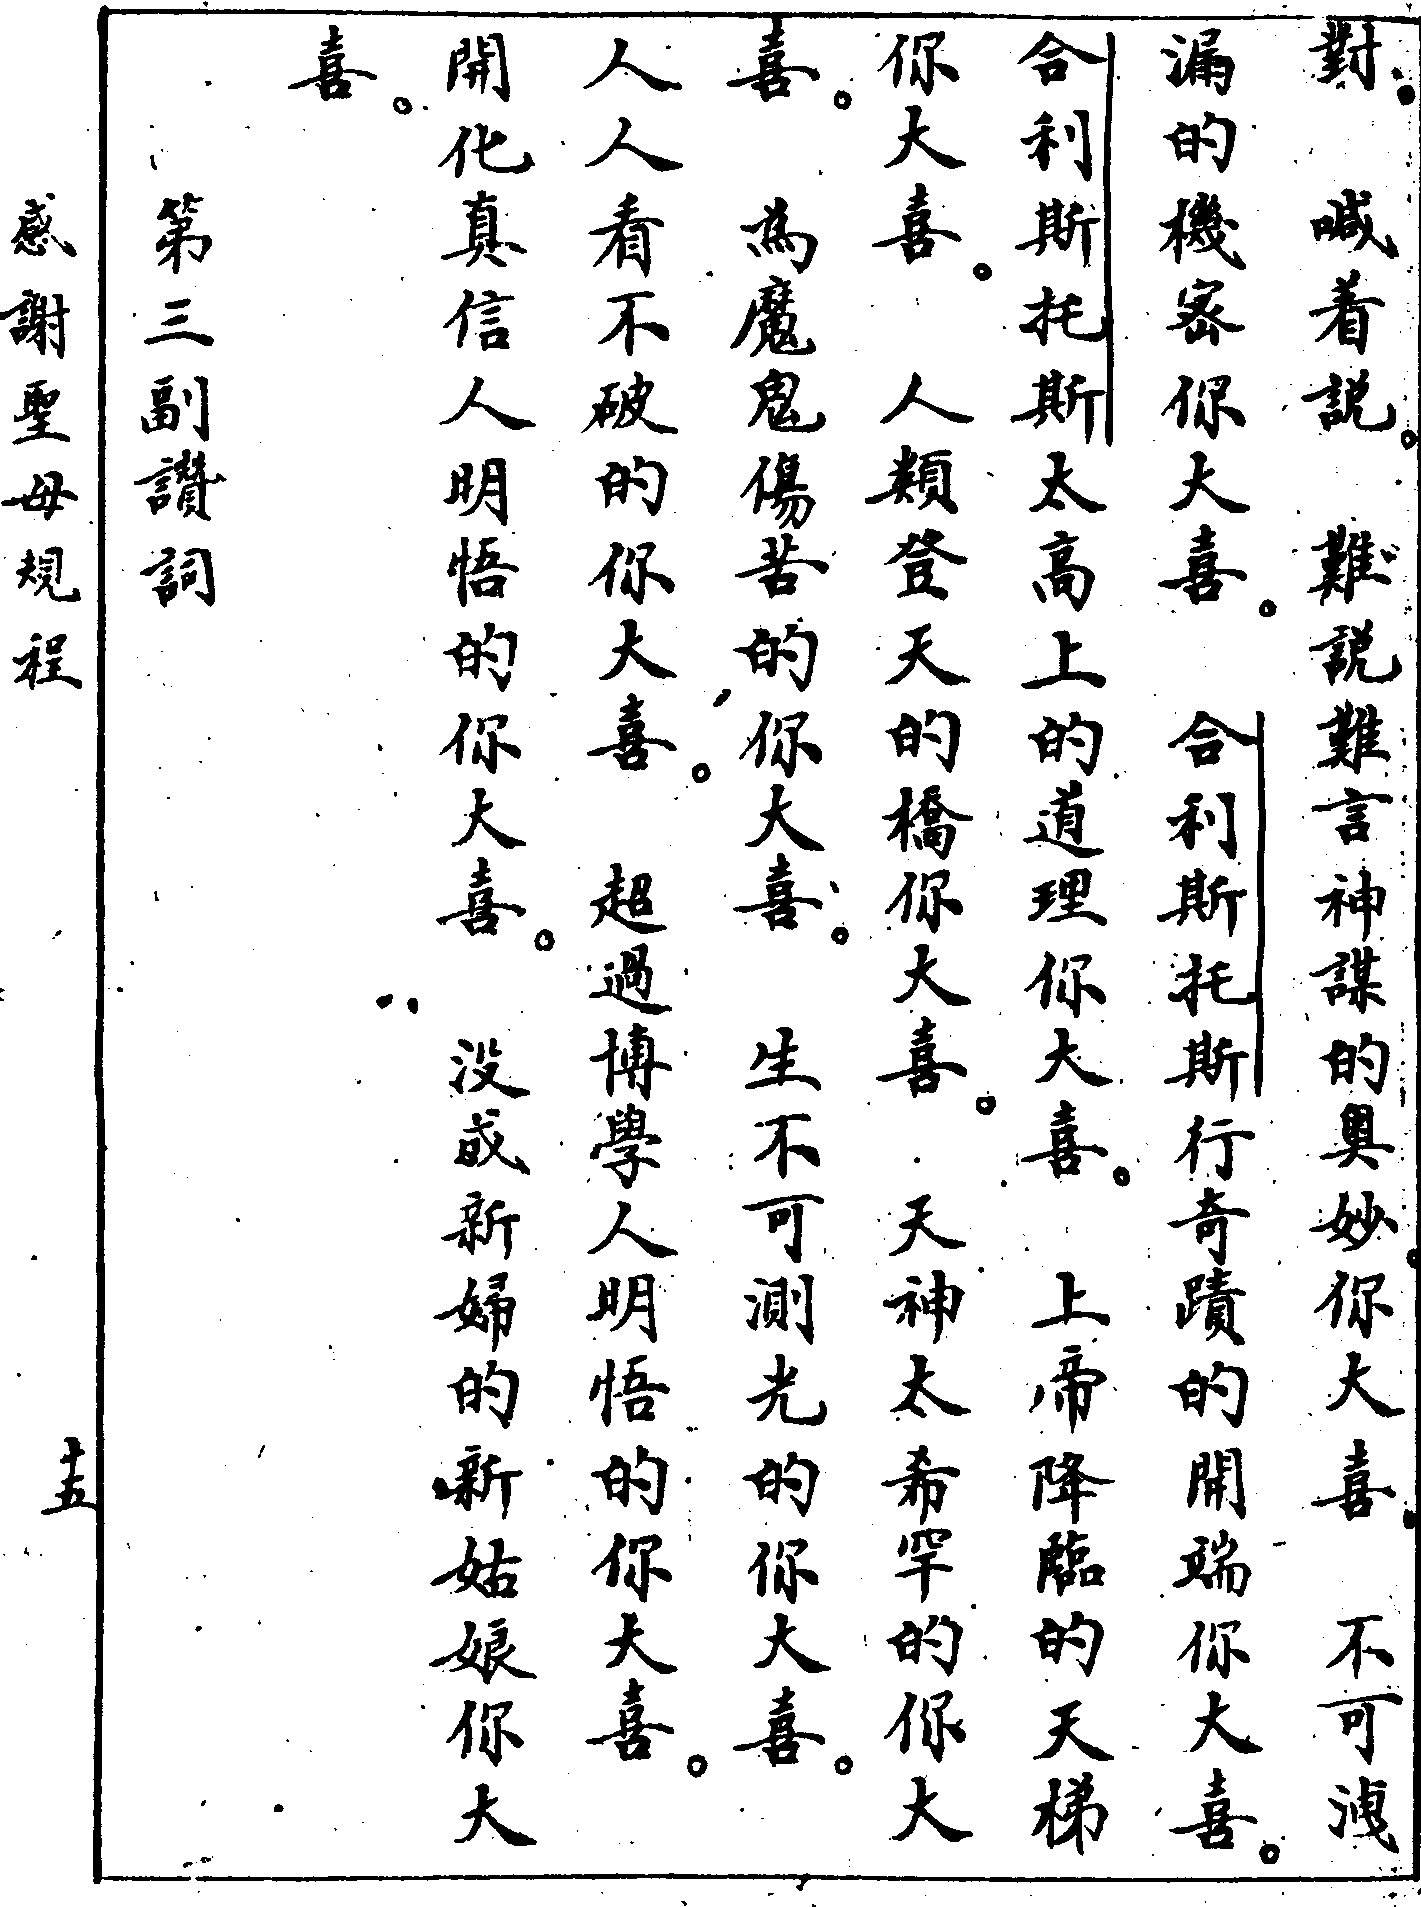 對。　喊着説。　難説難言神謀的奥妙你大喜。　不可洩
漏的機密你大喜。　合利斯托斯行奇蹟的開端你大喜。
合利斯托斯太高上的道理你大喜。　上帝降臨的天梯
你大喜。　人類登天的橋你大喜。　天神太希罕的你大
喜。　為魔鬼傷苦的你大喜。　生不可測光的你大喜。
人人看不破的你大喜。　超過博學人明悟的你大喜。
開化真信人明悟的你大喜。　没成新婦的新姑娘你大
喜。
第三副讚詞
感謝聖母規程
十五